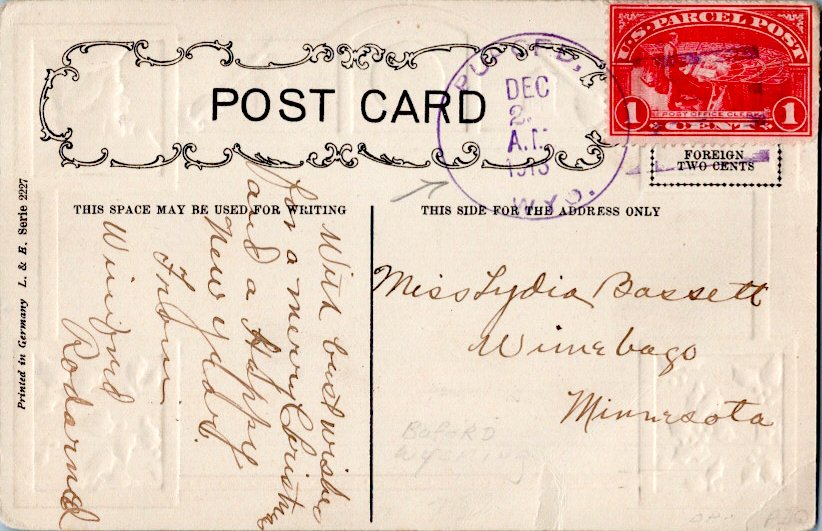 POST CARD
U.S. PARCEL POST
1 1
POST OFFICE CLERK
CENT
DEC
2
A.M.
1913
WYO.
FOREIGN
TWO CENTS
THIS SPACE MAY BE USED FOR WRITING
THIS SIDE FOR THE ADDRESS ONLY
Printed in Germany L. & E. Serie 2227
With best wishes
for a merry Christmas
and a Happy
new year.
From
Winifred
Miss Lydia Bassett
Winnebago
Minnesota
BUFORD
WYOMING